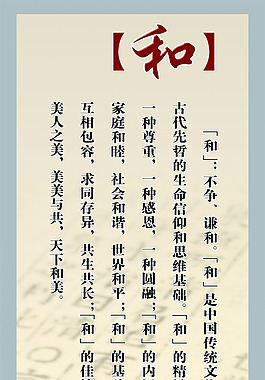 【和】
「和」：不争、谦和。「和」是中国传统文
古代先哲的生命信仰和思维基础。「和」的精
一种尊重，一种感恩，一种圆融；「和」的内
家庭和睦，社会和谐，世界和平；「和」的基
互相包容，求同存异，共生共长；「和」的佳
美人之美，美美与共，天下和美。